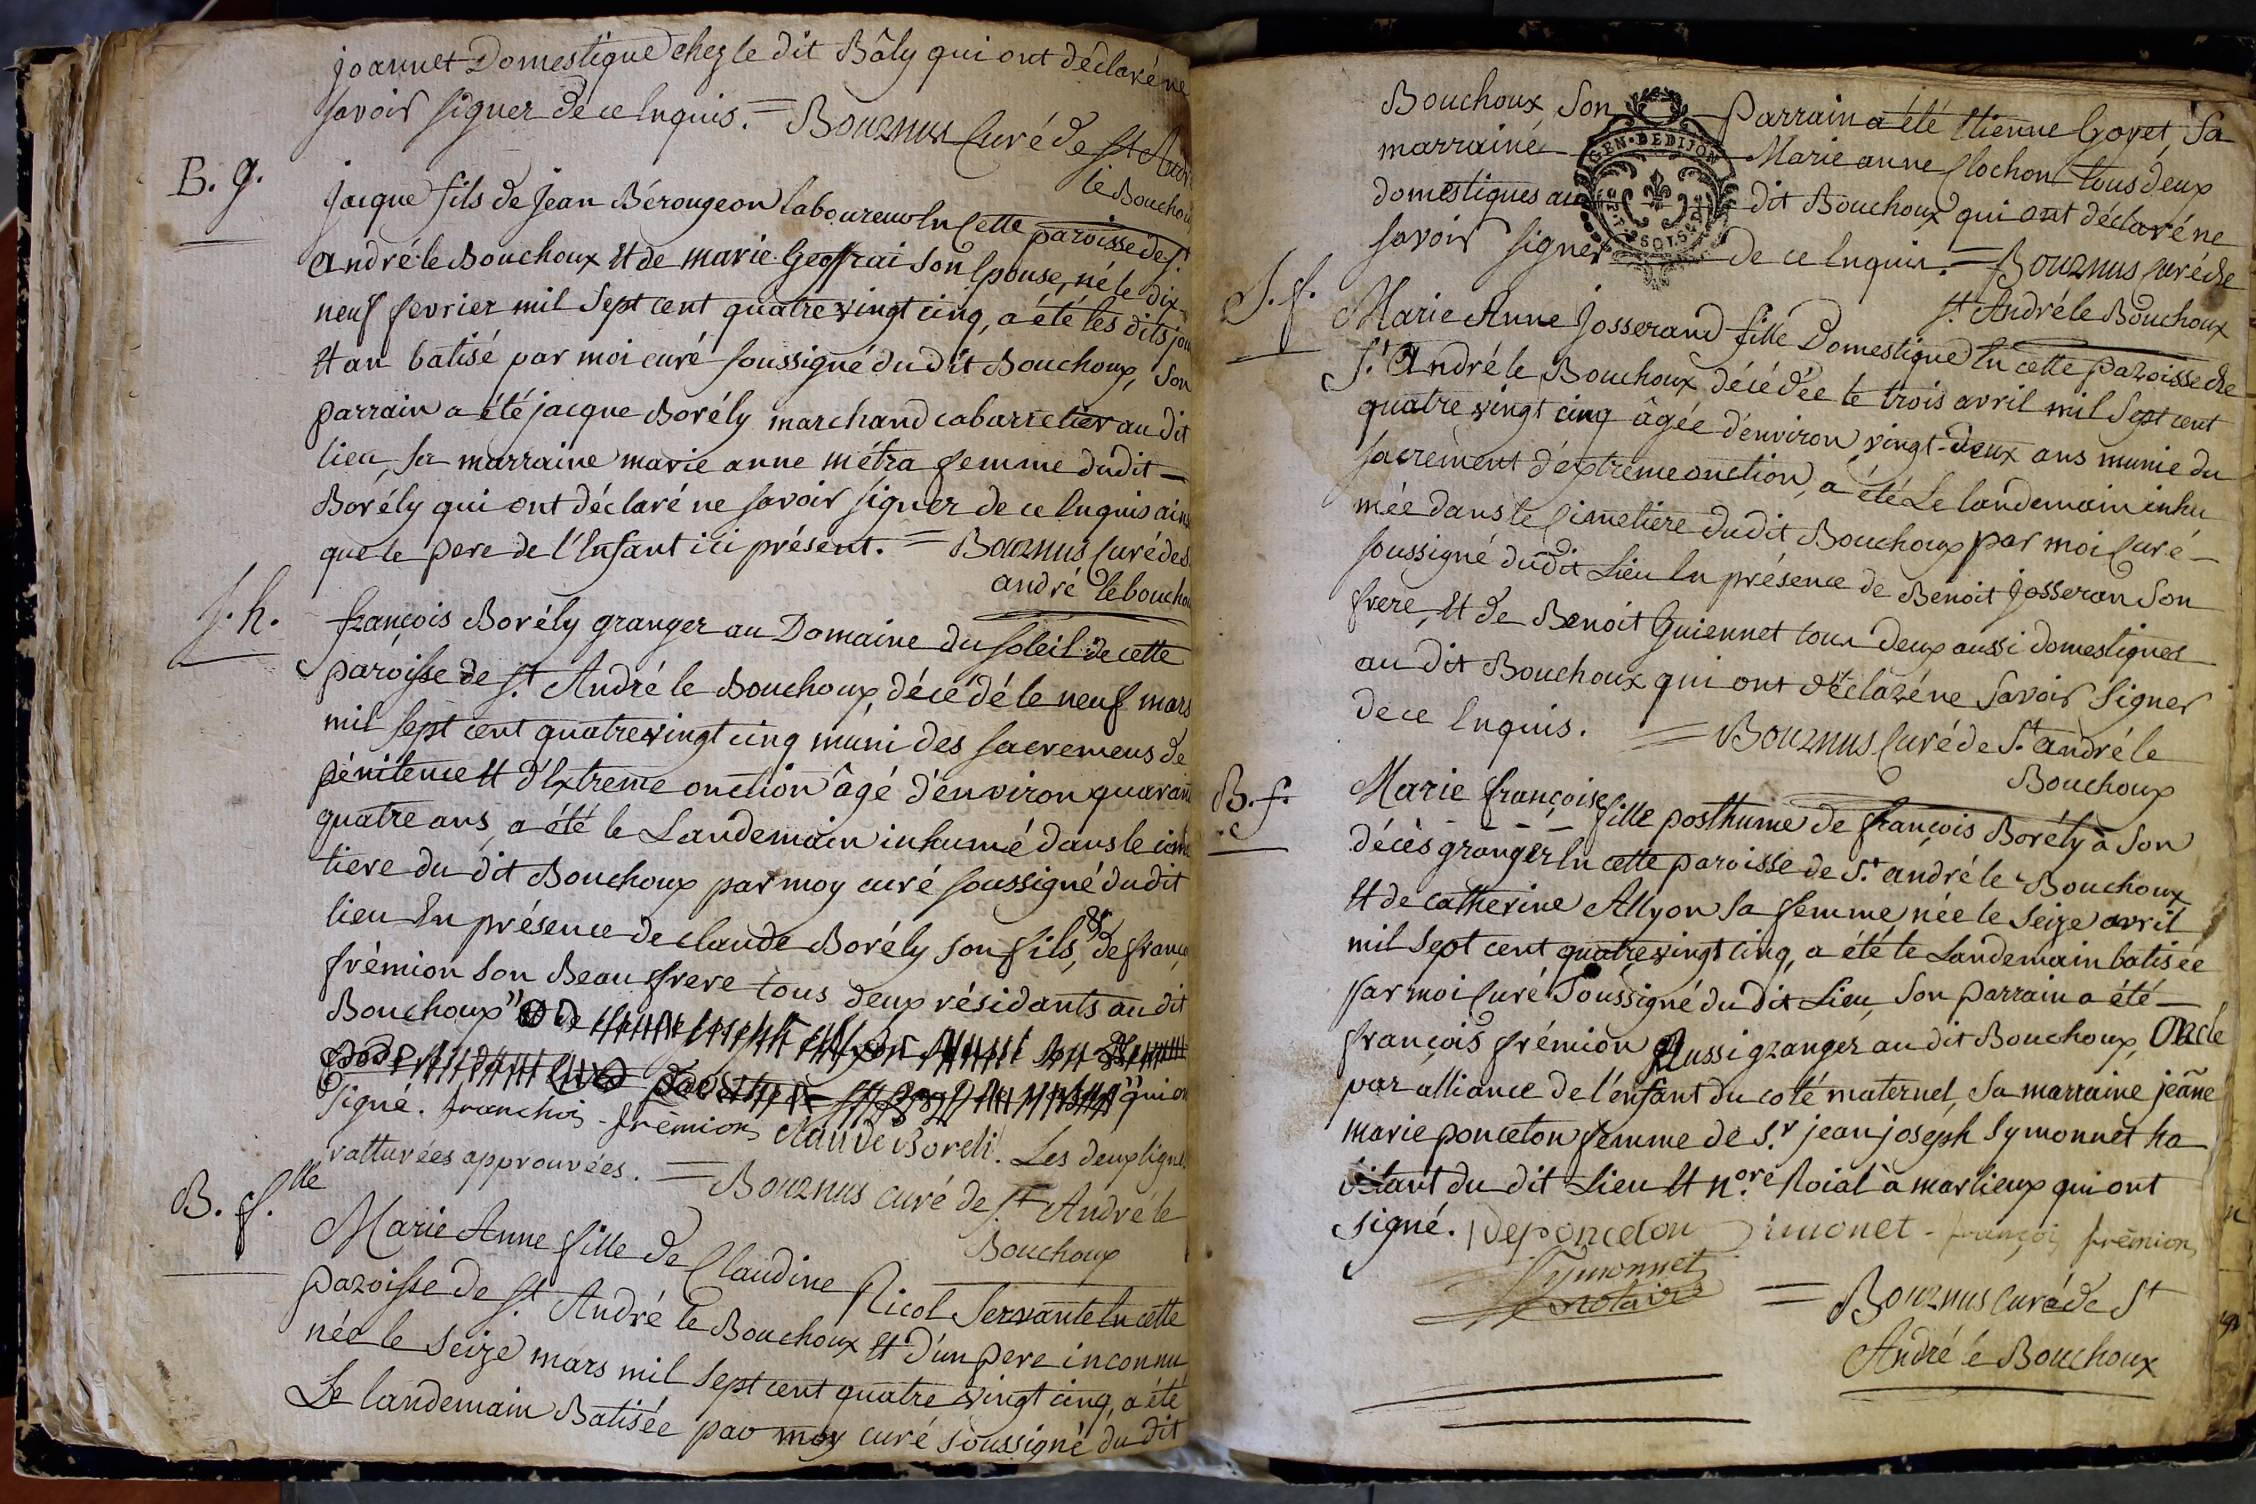 joannet Domestique chez le dit Bâly qui ont déclaré ne
savoir signer de ce Enquis. = Bournus Curé de St André
le Bouchoux
B. g.
jacque fils de jean Bérougeon laboureur En Cette paroisse de St
André le Bouchoux Et de marie Geoffrai Son Epouse, né le dix
neuf fevrier mil Sept cent quatre vingt cinq, a été les dits jour
Et an batisé par moi curé soussigné du dit Bouchoux, Son
parrain a été jacque Borély marchand cabarretier au dit
lieu, sa marraine marie anne métra femme dudit —
Borély qui ont déclaré ne savoir signer de ce Enquis ainsi
que le pere de l'Enfant ici présent. = Bournus Curé de St
andré le bouchoux
S. h.
françois Borély granger au Domaine du soleil de cette
paroisse de St André le Bouchoux, décédé le neuf mars
mil sept cent quatre vingt cinq muni des sacremens de
pénitence Et d'Extreme onction âgé d'environ quarante
quatre ans, a été le Landemain inhumé dans le cime
tiere du dit Bouchoux par moy curé soussigné dudit
lieu En présence de claude Borély son fils, & de françois
frémion son Beau frere tous deux résidants au dit
Bouchoux" Et de
"qui ont
signé. franchois frémion Claude Boreli. Les deux lignes
ratturées approuvées. = Bournus curé de St André le
Bouchoux
B. f.lle
Marie Anne fille de Claudine Nicol Servante En cette
paroisse de St André le Bouchoux Et d'un pere inconnu
née le Seize mars mil Sept cent quatre vingt cinq, a été
Le landemain Batisée par moy curé soussigné du dit
Bouchoux, Son Parrain a été Etienne Goyet, Sa
GEN. DE DIJON
marraine Marie anne Clochon tous deux
domestiques au dit Bouchoux qui ont déclaré ne
savoir signer de ce Enquis. = Bournus curé de
St André le Bouchoux
S. f.
Marie Anne Josserand fille Domestique En cette paroisse de
St André le Bouchoux, décédée le trois avril mil Sept cent
quatre vingt cinq âgée d'environ vingt-deux ans munie du
sacrement d'extreme onction, a été Le landemain inhu
mée dans le Cimetiere dudit Bouchoux par moi Curé —
soussigné dudit Lieu En présence de Benoit Josseran Son
frere, Et de Benoit Guiennet tous deux aussi domestiques
au dit Bouchoux qui ont déclaré ne Savoir Signer
de ce Enquis. = Bournus Curé de St. André le
Bouchoux
B. f.
Marie françoise fille posthume de françois Borély à Son
décès granger En cette paroisse de St. andré le Bouchoux
Et de catherine Allyon sa femme, née le Seize avril
mil Sept cent quatre vingt cinq, a été le Landemain batisée
par moi Curé Soussigné du dit Lieu, Son parrain a été —
françois frémion Aussi granger au dit Bouchoux, Oncle
par alliance de l'enfant du coté maternel, Sa marraine jeãne
marie ponceton femme de S.r jean joseph Symonnet ha
bitant du dit Lieu Et n.ore Roial à marlieux qui ont
signé. deponceton Simonet - françois frémion
Symonnet
notaire = Bournus curé de St
André le Bouchoux